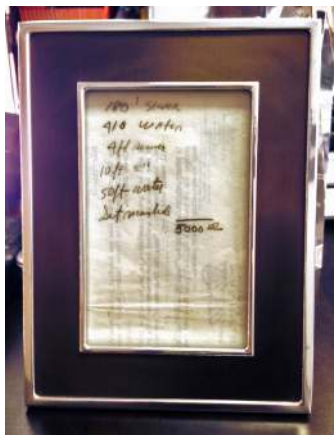 180' sewer
410 water
4ft sewer
10ft
50ft water
Set manhole
5000